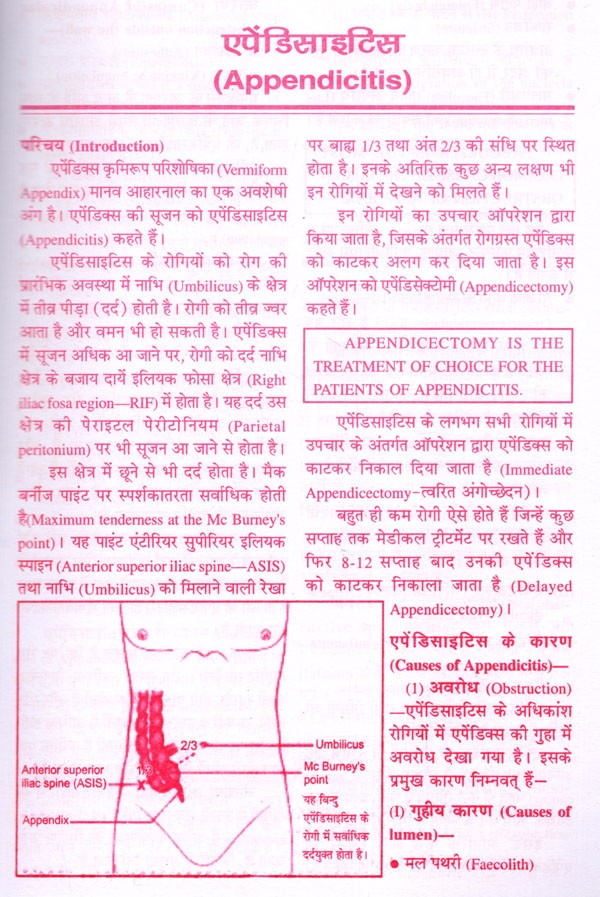 एपेंडिसाइटिस
(Appendicitis)
परिचय (Introduction)
एपेंडिक्स कृमिरूप परिशोषिका (Vermiform
Appendix) मानव आहारनाल का एक अवशेषी
अंग है। एपेंडिक्स की सूजन को एपेंडिसाइटिस
(Appendicitis) कहते हैं।
एपेंडिसाइटिस के रोगियों को रोग की
प्रारंभिक अवस्था में नाभि (Umbilicus) के क्षेत्र
में तीव्र पीड़ा (दर्द) होती है। रोगी को तीव्र ज्वर
आता है और वमन भी हो सकती है। एपेंडिक्स
में सूजन अधिक आ जाने पर, रोगी को दर्द नाभि
क्षेत्र के बजाय दायें इलियक फोसा क्षेत्र (Right
iliac fosa region—RIF) में होता है। यह दर्द उस
क्षेत्र की पेराइटल पेरीटोनियम (Parietal
peritonium) पर भी सूजन आ जाने से होता है।
इस क्षेत्र में छूने से भी दर्द होता है। मैक
बर्नीज पाइंट पर स्पर्शकातरता सर्वाधिक होती
है(Maximum tenderness at the Mc Burney's
point)। यह पाइंट एंटीरियर सुपीरियर इलियक
स्पाइन (Anterior superior iliac spine—ASIS)
तथा नाभि (Umbilicus) को मिलाने वाली रेखा
पर बाह्य 1/3 तथा अंत 2/3 की संधि पर स्थित
होता है। इनके अतिरिक्त कुछ अन्य लक्षण भी
इन रोगियों में देखने को मिलते हैं।
इन रोगियों का उपचार ऑपरेशन द्वारा
किया जाता है, जिसके अंतर्गत रोगग्रस्त एपेंडिक्स
को काटकर अलग कर दिया जाता है। इस
ऑपरेशन को एपेंडिसेक्टोमी (Appendicectomy)
कहते हैं।
APPENDICECTOMY IS THE
TREATMENT OF CHOICE FOR THE
PATIENTS OF APPENDICITIS.
एपेंडिसाइटिस के लगभग सभी रोगियों में
उपचार के अंतर्गत ऑपरेशन द्वारा एपेंडिक्स को
काटकर निकाल दिया जाता है (Immediate
Appendicectomy-त्वरित अंगोच्छेदन)।
बहुत ही कम रोगी ऐसे होते हैं जिन्हें कुछ
सप्ताह तक मेडीकल ट्रीटमेंट पर रखते हैं और
फिर 8-12 सप्ताह बाद उनकी एपेंडिक्स
को काटकर निकाला जाता है (Delayed
Appendicectomy)।
एपेंडिसाइटिस के कारण
(Causes of Appendicitis)—
(1) अवरोध (Obstruction)
—एपेंडिसाइटिस के अधिकांश
रोगियों में एपेंडिक्स की गुहा में
अवरोध देखा गया है। इसके
प्रमुख कारण निम्नवत् हैं—
(I) गुहीय कारण (Causes of
lumen)—
● मल पथरी (Faecolith)
2/3
Umbilicus
1/3
Anterior superior
iliac spine (ASIS)
X
Mc Burney's
point
यह बिन्दु
एपेंडिसाइटिस के
रोगी में सर्वाधिक
दर्दयुक्त होता है।
Appendix